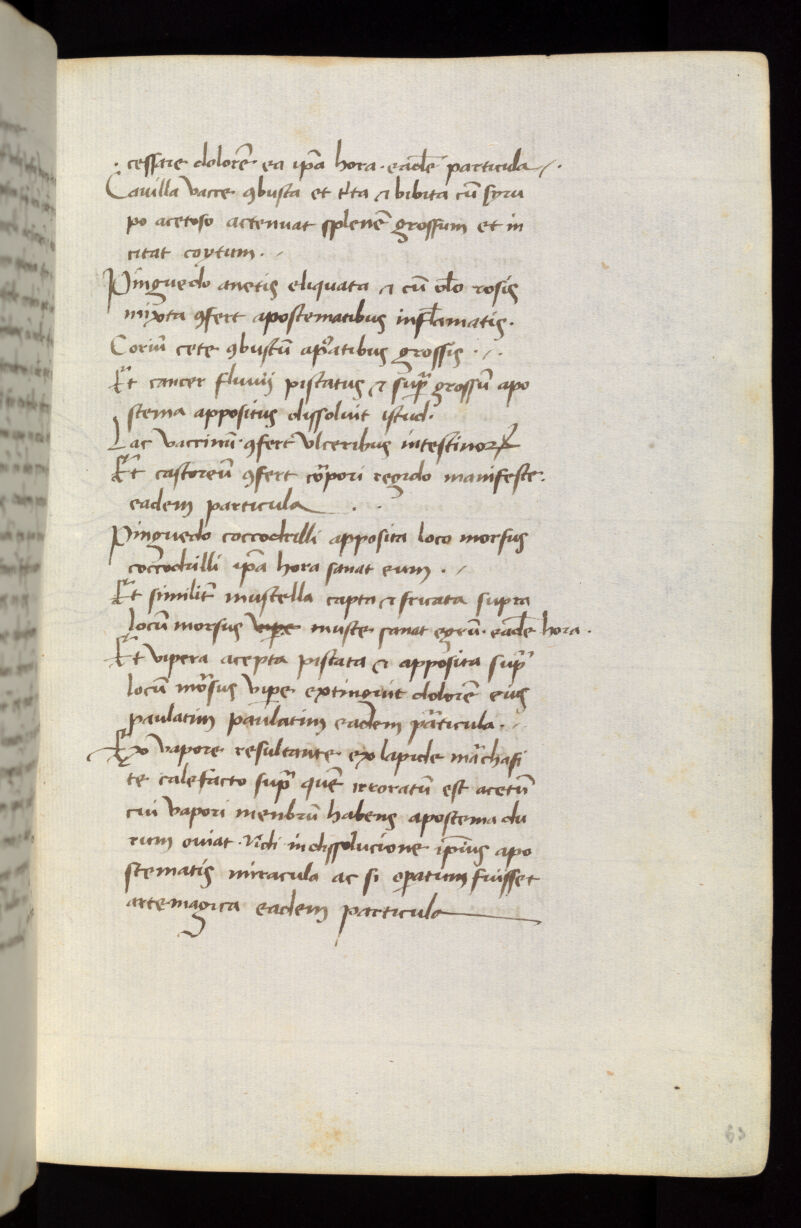 · cessare dolorē ea ip̄a hora · eadē particula ·
Cauilla vacce ꝯbusta et t'ita ⁊ bibita cū syru
po acetoso actenuat splenē grossum et in
citat coytum ·
Pinguedo anetis eliquata ⁊ cū ol̄o rosis
mixta ꝯfert apostematibus inflamatis ·
Coriū cete ꝯbustū apatibus grossis ·
Et cancer fluuij pistatus ⁊ sup̄ grossū apo
stema appositus dissoluit istud ·
Lac vaccinū · ꝯfert vlceribus intestinorꝝ
Et castoreū ꝯfert corpori regido manifeste ·
eadem particula ·
Pinguedo coccodrilli apposita loco morsus
coccodrilli ip̄a hora sanat eum ·
Et similit' mustella capta ⁊ fricata supra
locū morsus vipe muste sanat egrū · eadē hora ·
Et vipera acepta pistata ⁊ apposita sup̄
locū morsus vipe extinguit dolorē eius
paulatim paulatim eadem particula ·
Ex vapore resultante ex lapide marchasi
te calefacto sup̄ quē irroratū est acetū
cui vapori menbrū habens apostema du
rum ouiat · vidi in dissolucione ip̄ius apo
stematis miracula ac si opatum fuisset
arte magica eadem particula
63